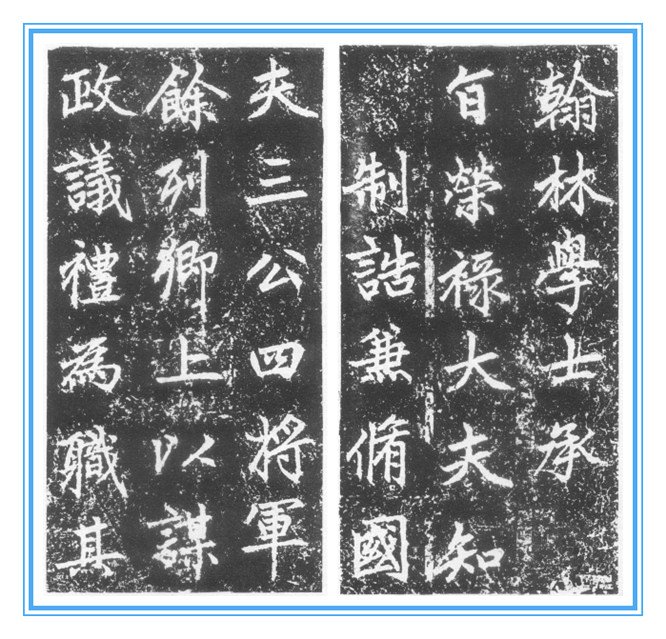 翰林學士承
旨榮祿大夫知
制誥兼脩國
夫三公四将軍
餘列卿上以謀
政議禮為職其